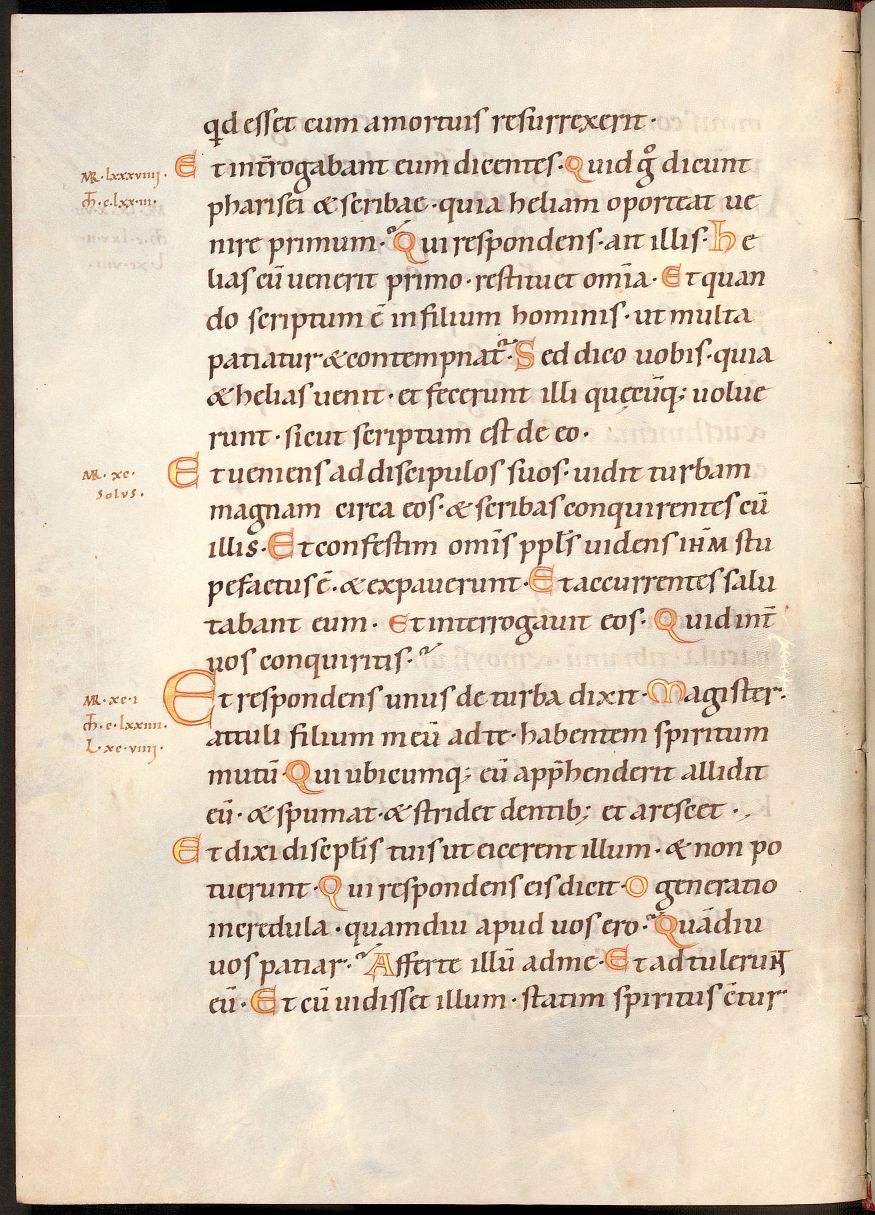 qđ esset cum amortuis resurrexerit·
MR·lxxxviiii·
Et int̄rogabant eum dicentes· Quid g̊ dicunt
M̄·c·lxx·iii·
pharisei & scribae· quia heliam oportet ue
nire primum· Qui respondens· ait illis· He
lias cū uenerit primo· restituet om̄ia· Et quan
do scriptum ē infilium hominis· ut multa
patiatur· & contempnat̄· Sed dico uobis· quia
& helias uenit· et fecerunt illi quęcūq; uolue
runt· sicut scriptum est de eo·
MR· xc·
Solus·
Et ueniens ad discipulos suos· uidit turbam
magnam circa eos· & scribas conquirentes cū
illis· Et confestim omīs ppłs uidens ihm̄ stu
pefactus ē· & expauerunt· Et accurrentes salu
tabant eum· Et interrogauit eos· Quid int̄
uos conquiritis·
MR·xc·i
M̄·c·lxxiiii·
L·xc·viiii·
Et respondens unus de turba dixit· Magister·
attuli filium meū ad te· habentem spiritum
mutū· Qui ubicumq; eū app̄henderit allidit
eū· & spumat· & stridet dentib; et arescet·
Et dixi discipłis tuis ut eicerent illum· & non po
tuerunt· Qui respondens eis dicit· O generatio
incredula· quamdiu apud uos ero· Quādiu
uos patiar· Afferte illū ad me· Et ad tulerunt
eū· Et cū uidisset illum· statim spiritus c̄tur·